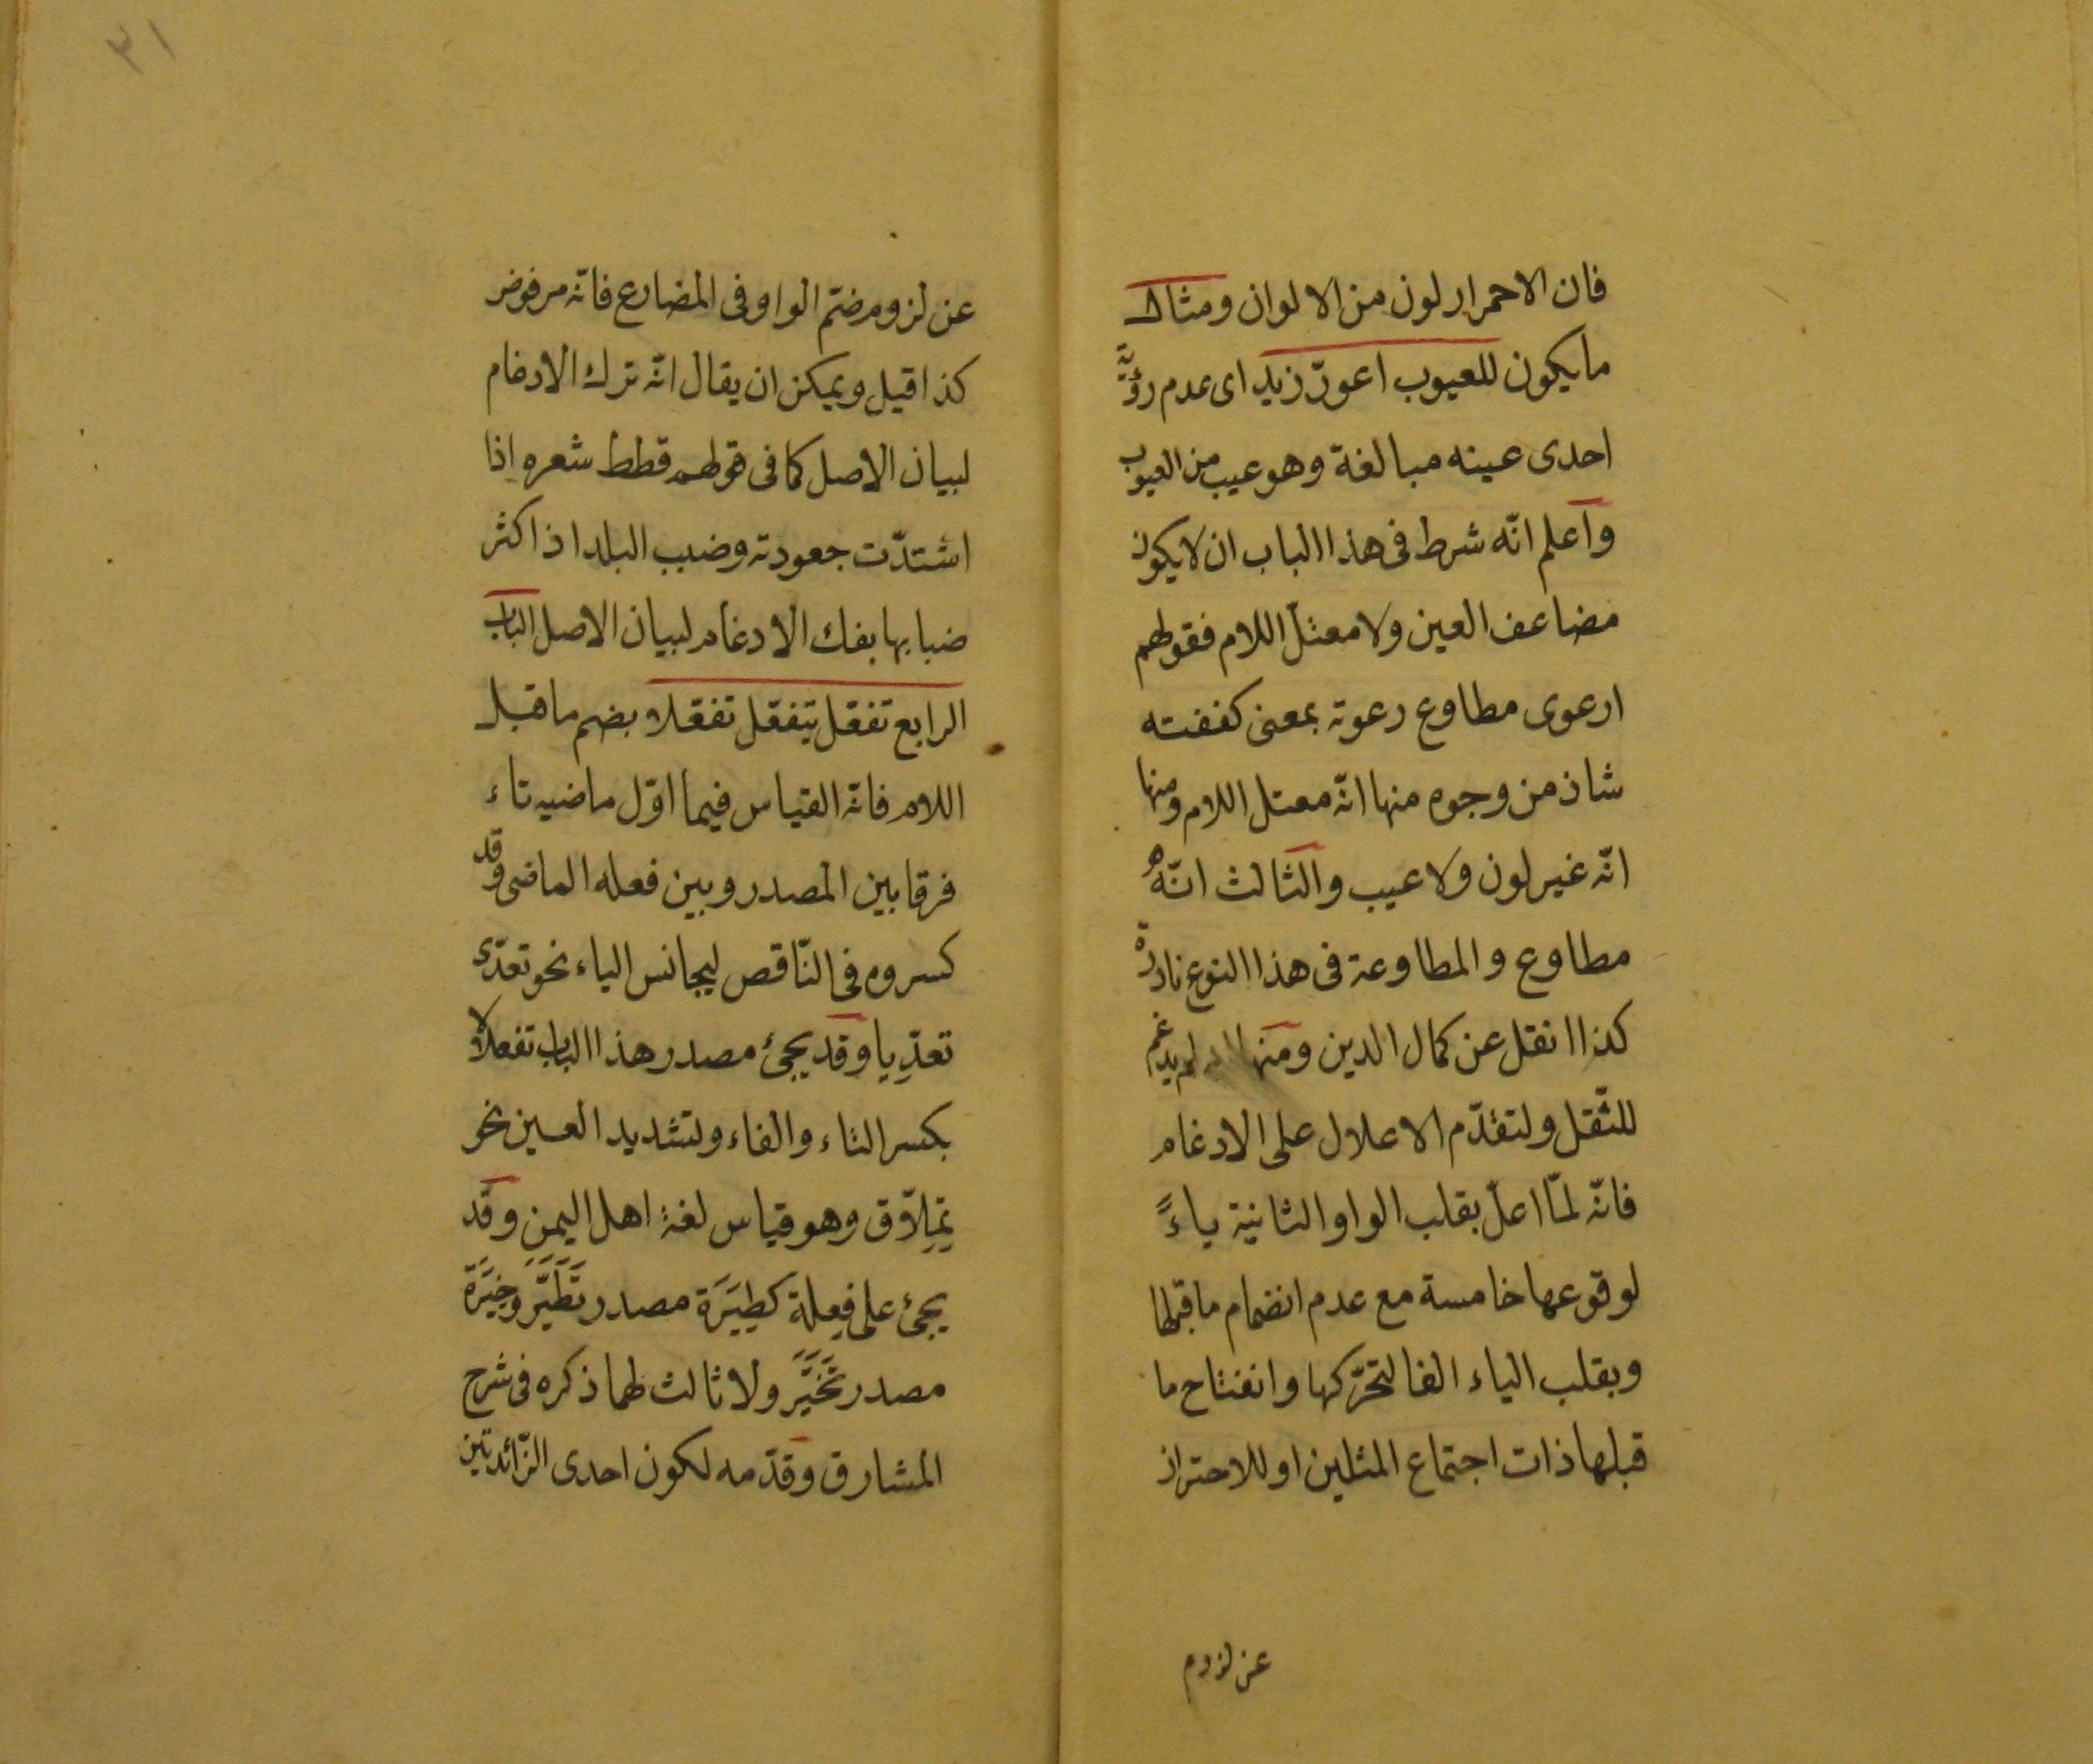 فان الاحمرار لون من الالوان ومثال
ما يكون للعيوب اعورّ زيد اى عدم رؤية
احدى عينه مبالغة وهو عيب من العيوب
واعلم انّه شرط فى هذا الباب ان لا يكون
مضاعف العين ولا معتلّ اللام فقولهم
ارعوى مطاوع رعوته بمعنى كففته
شاذ من وجوه منها انّه معتل اللام ومنها
انّه غير لون ولا عيب والثالث انّه
مطاوع والمطاوعة فى هذا النوع نادرة
كذا انقل عن كمال الدين ومنها لم يدغم
للثّقل ولتقدّم الاعلال على الادغام
فانّه لمّا اعلّ بقلب الواو الثانية ياءً
لوقوعها خامسة مع عدم انضمام ما قبلها
وبقلب الياء الفا لتحرّكها وانفتاح ما
قبلها ذات اجتماع المثلين او للاحتراز
عن لزوم
٣١
عن لزوم ضمّ الواو فى المضارع فانّه مرفوض
كذا قيل ويمكن ان يقال انّه ترك الادغام
لبيان الاصل كما فى قولهم قطط شعره اذا
اشتدّت جعودته وضبب البلد اذا كثر
ضبابها بفك الادغام لبيان الاصل الباب
الرابع تفعّل يتفعّل تفعّلا بضم ما قبل
اللام فانّه القياس فيما اوّل ماضيه تاء
فرقا بين المصدر وبين فعله الماضى وقد
كسروه فى النّاقص ليجانس الياء نحو تعدّى
تعدّيا وقد يجئ مصدر هذا الباب تفعلالا
بكسر التاء والفاء ولتشديد العين نحو
تملّاق وهو قياس لغة اهل اليمن وقد
يجئ على فعلة كطيَرَة مصدر تَطَيَّرَ وخيَرَة
مصدر تَخَيَّرَ ولا ثالث لهما ذكره فى شرح
المشارق وقدّمه لكون احدى الزّائدتين